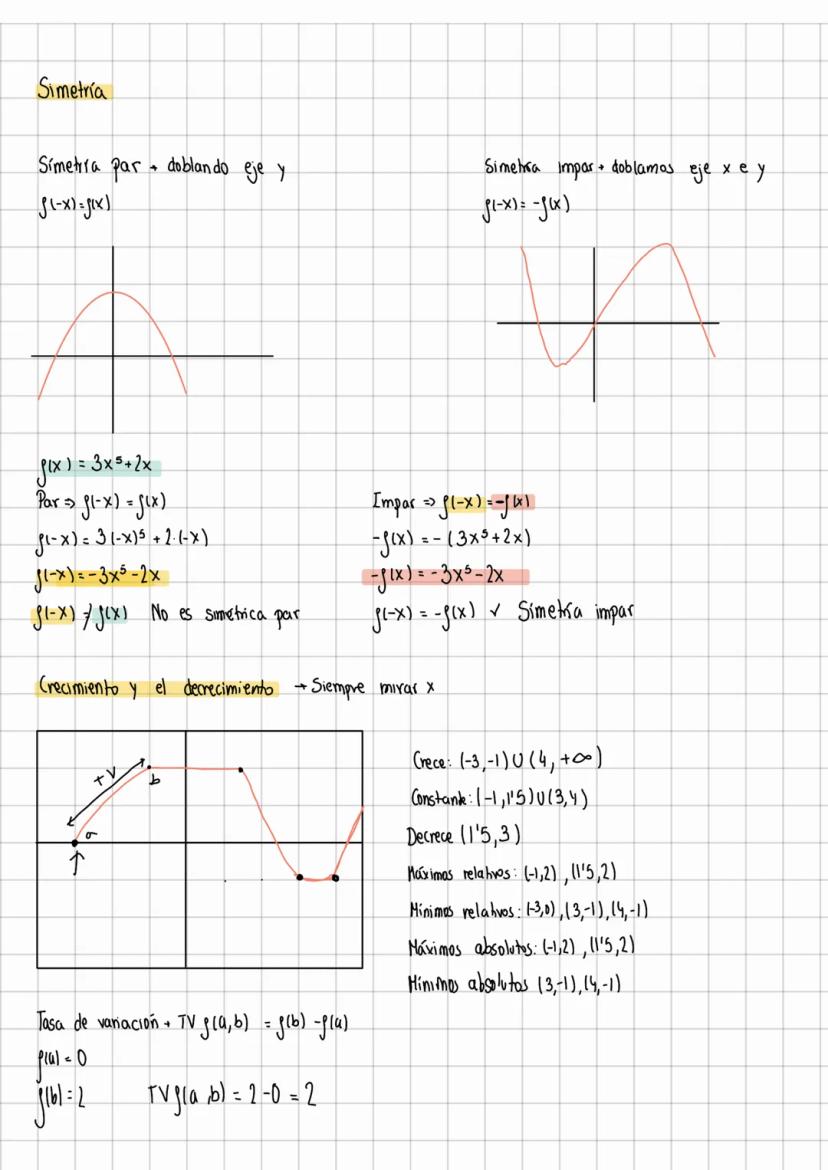 Simetría
Simetría par → doblando eje y
f(-x)=f(x)
Simetría impar → doblamos eje x e y
f(-x)= -f(x)
f(x) = 3x⁵+2x
Par ⇒ f(-x) = f(x)
f(-x) = 3(-x)⁵ + 2·(-x)
f(-x) = -3x⁵ - 2x
f(-x) ≠ f(x) No es simétrica par
Impar ⇒ f(-x) = -f(x)
-f(x) = - (3x⁵+2x)
-f(x) = -3x⁵ - 2x
f(-x) = -f(x) ✓ Simetría impar
Crecimiento y el decrecimiento → Siempre mirar x
+V
b
a
Crece: (-3,-1) U (4, +∞)
Constante: (-1,1'5) U (3,4)
Decrece (1'5,3)
Máximos relativos: (-1,2), (1'5,2)
Mínimos relativos: (-3,0), (3,-1), (4,-1)
Máximos absolutos: (-1,2), (1'5,2)
Mínimos absolutos (3,-1), (4,-1)
Tasa de variación → TV f(a,b) = f(b) - f(a)
f(a) = 0
f(b) = 2 TV f(a,b) = 2-0 = 2